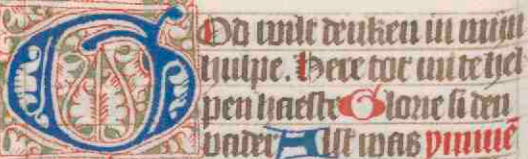 God wilt denken in mijn
hulpe. Here tot mi te hel
pen haeste Glorie si den
vader Alst was ymmē